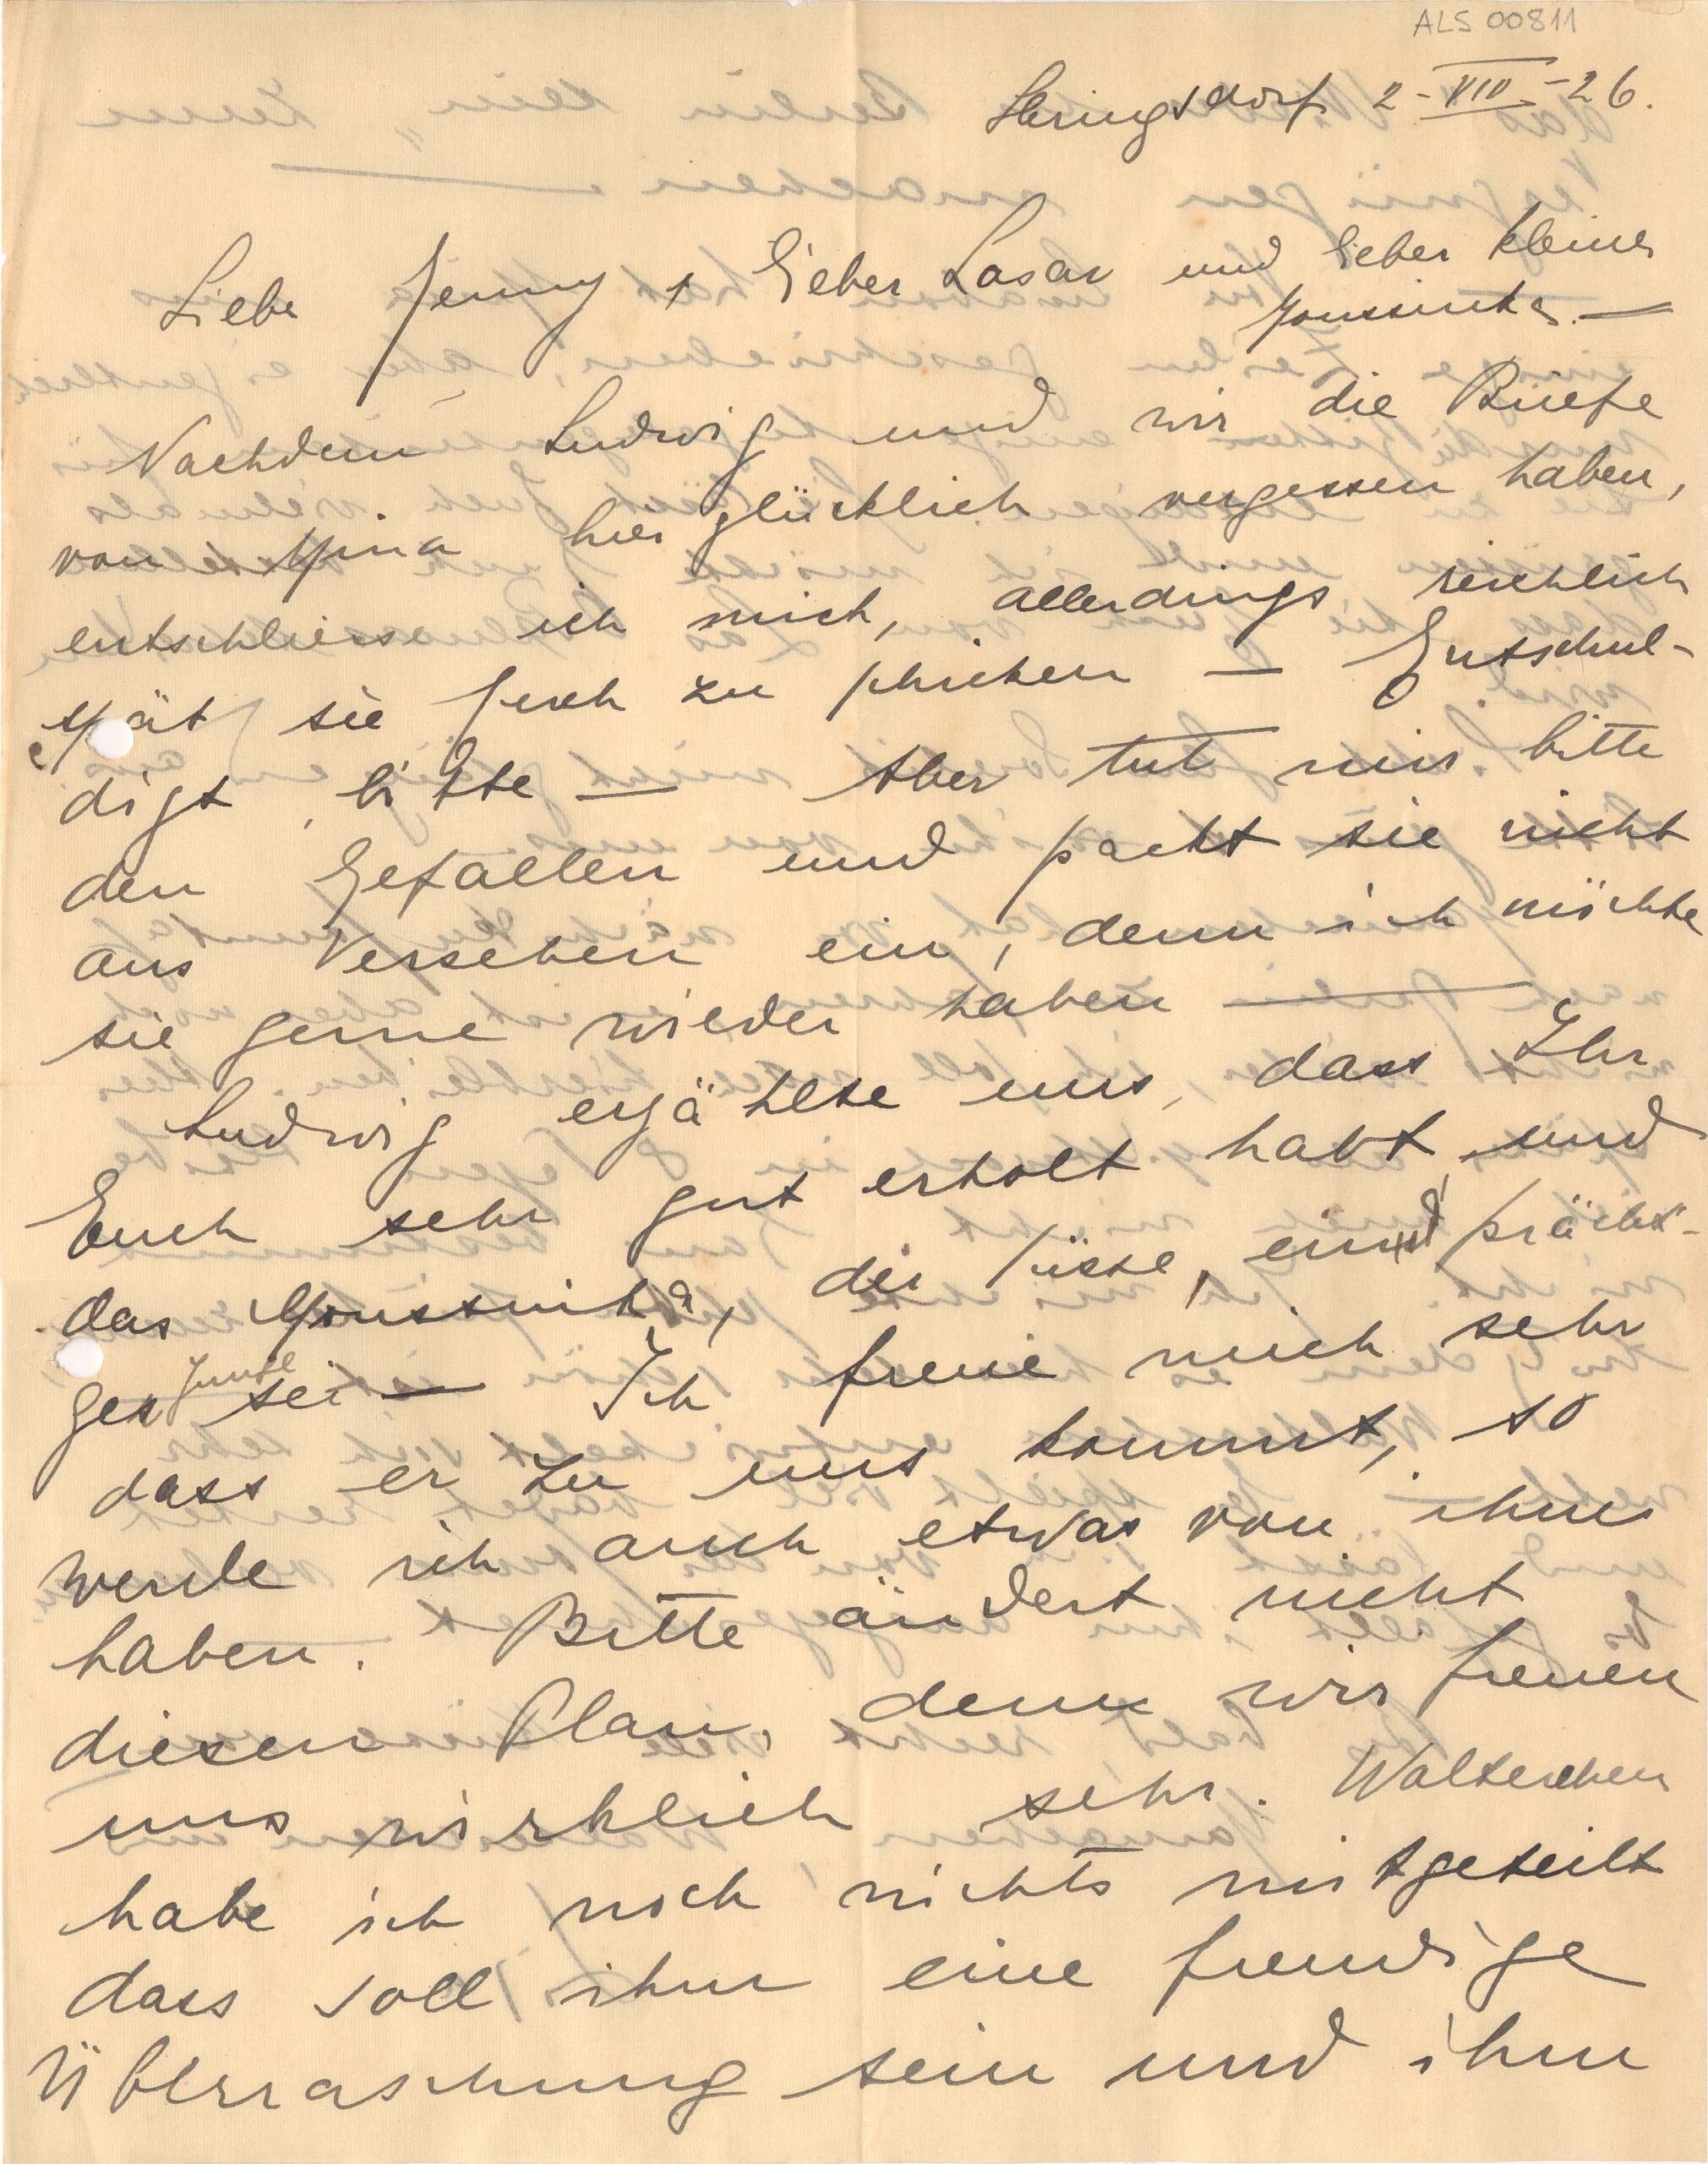 ALS 00811
Heringsdorf 2-VIII-26.
Liebe Jenny, lieber Lasar und lieber kleiner
Moussinka. —
Nachdem Ludwig und wir die Briefe
von Mina hier glücklich vergessen haben,
entschliesse ich mich, allerdings reichlich
spät sie Euch zu schicken — Entschul-
digt, bitte — Aber tut mir bitte
den Gefallen und packt sie nicht
aus Versehen ein, denn ich möchte
sie gerne wieder haben —
Ludwig erzählte uns, dass Ihr
Euch sehr gut erholt habt, und
das Moussinka, der süsse, ein prächti-
ger Junge sei — Ich freue mich sehr
dass er zu uns kommt, so
werde ich auch etwas von ihm
haben. Bitte ändert nicht
diesen Plan, denn wir freuen
uns wirklich sehr. Walterchen
habe ich noch nichts mitgeteilt
dass soll ihm eine freudige
Überraschung sein und ihm